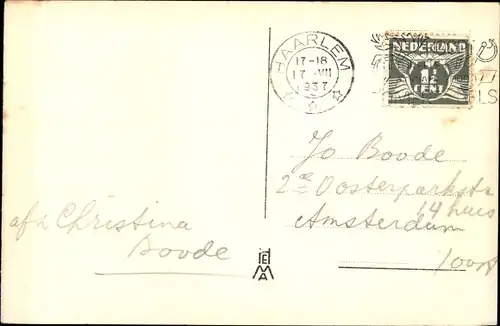 HAARLEM
17-18
17 · VII
1937
NEDERLAND
1½
CENT
LS
Jo Boode
2e Oosterparkstr
14 huis
Amsterdam
afz Christina
Boode
TEMA